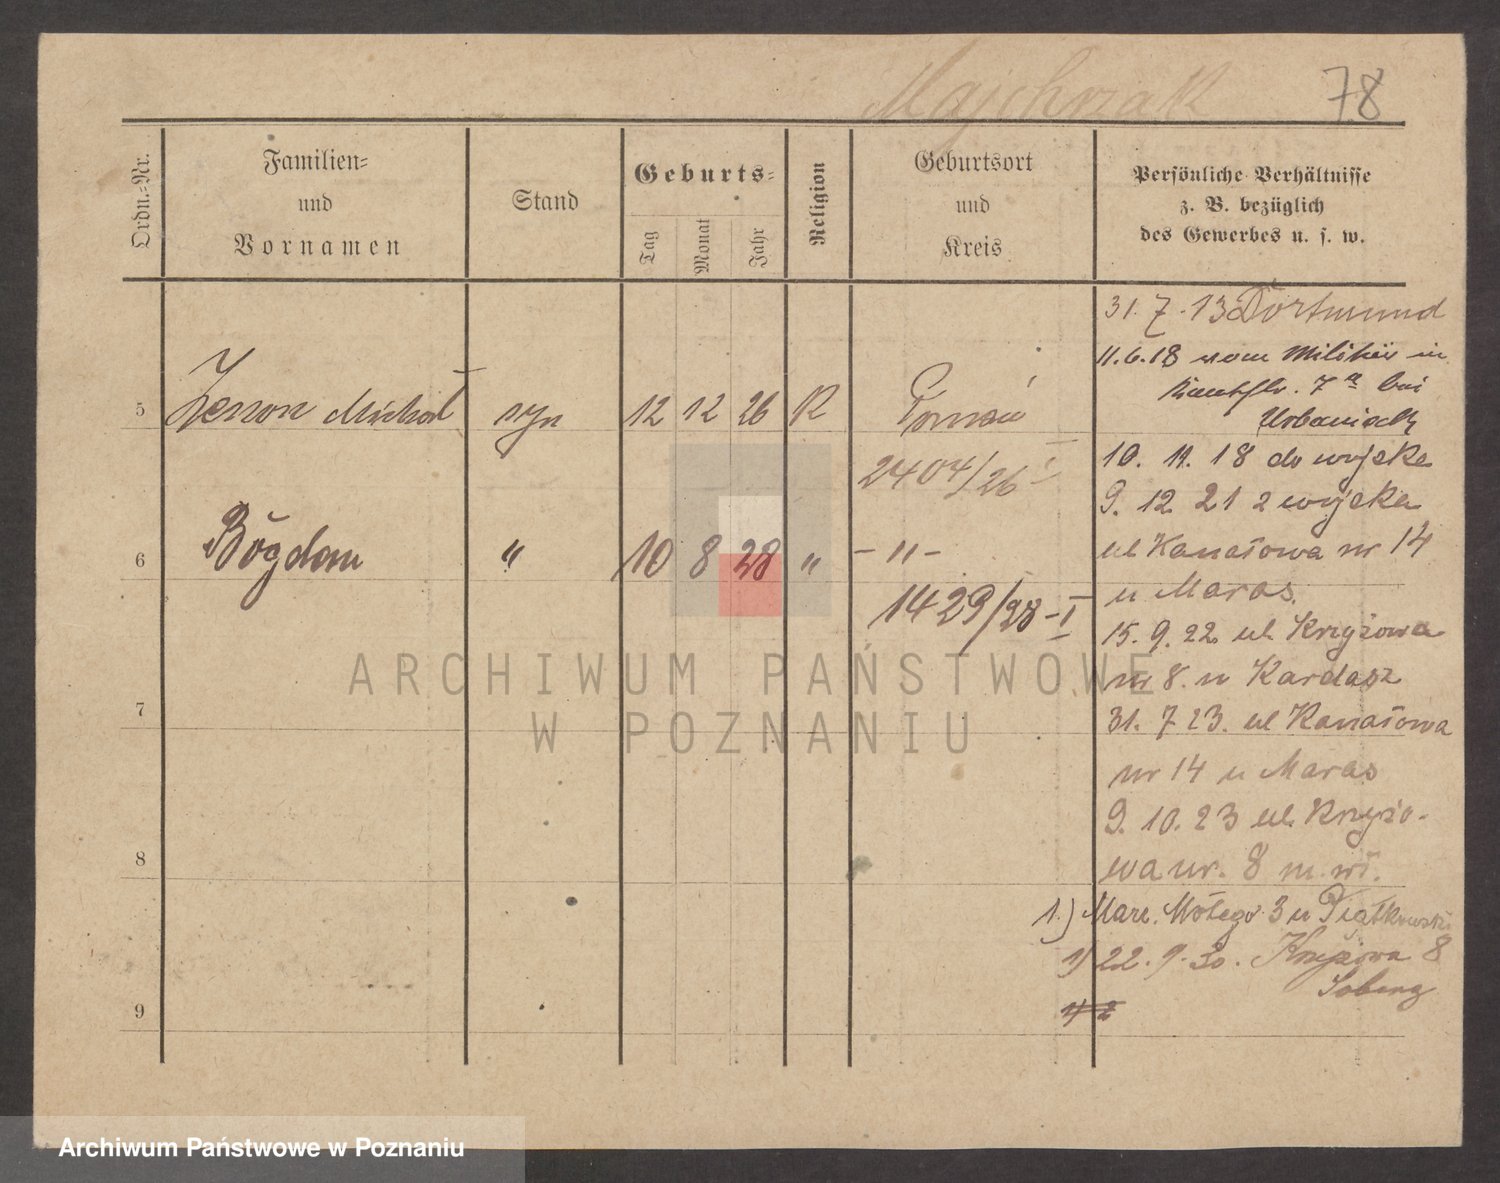 Majchrzak 78
Ordn.-Nr.
Familien-
und
Vornamen
Stand
Geburts-
Tag
Monat
Jahr
Religion
Geburtsort
und
Kreis
Persönliche Verhältnisse
z. B. bezüglich
des Gewerbes u. s. w.
5 Zenon Michał syn 12 12 26 R Poznań
2404/26 I
6 Bogdan " 10 8 28 " - " -
1429/28 - I
7
8
9
31. 7. 13 Dortmund
11.6.18 vom Militär in
7 bei
Urbaniak
10. 11. 18 do wojska
9. 12 21 z wojska
ul Kanałowa nr 14
u Maras.
15. 9. 22 ul. Krzyżowa
nr 8. u Kardasz
31. 7 23. ul Kanałowa
nr 14 u Maras
9. 10. 23 ul. Krzyżo-
wa nr. 8 m. wł.
1.) Marc. Mottego 3 u Piątkowski
1) 22. 9. 30. Krzyżowa 8
ARCHIWUM PAŃSTWOWE
W POZNANIU
Archiwum Państwowe w Poznaniu